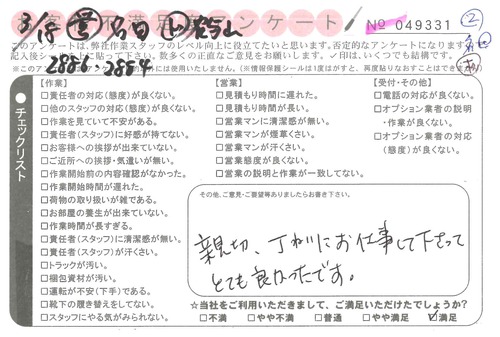 お客様不満足度アンケート
No 049331
3/18
②
このアンケートは、弊社作業スタッフのレベル向上に役立てたいと思います。否定的なアンケートになりますが
記入後シート上に貼って下さい。数多くの正直なご意見をお願いします。✓印は、いくつでも結構です。
チェックリスト
【作業】
□責任者の対応(態度)が良くない。
□他のスタッフの対応(態度)が良くない。
□作業を見ていて不安がある。
□責任者(スタッフ)に好感が持てない。
□お客様への挨拶が出来ていない。
□ご近所への挨拶・気遣いが無い。
□作業開始前の内容確認がなかった。
□作業開始時間が遅れた。
□荷物の取り扱いが雑である。
□お部屋の養生が出来ていない。
□作業時間が長すぎる。
□責任者(スタッフ)に清潔感が無い。
□責任者(スタッフ)が汗くさい。
□トラックが汚い。
□梱包資材が汚い。
□運転が不安(下手)である。
□靴下の履き替えをしてない。
□スタッフにやる気がみられない。
【営業】
□見積もり時間に遅れた。
□見積もり時間が長い。
□営業マンに清潔感が無い。
□営業マンが煙草くさい。
□営業マンが汗くさい。
□営業態度が良くない。
□営業の説明と作業が一致してない。
【受付・その他】
□電話の対応が良くない。
□オプション業者の説明
・作業が良くない。
□オプション業者の対応
(態度)が良くない。
その他、ご意見・ご要望等ありましたらお書き下さい。
親切、丁ねいにお仕事して下さって
とても良かったです。
☆当社をご利用いただきまして、ご満足いただけたでしょうか?
□不満 □やや不満 □普通 □やや満足 ☑満足